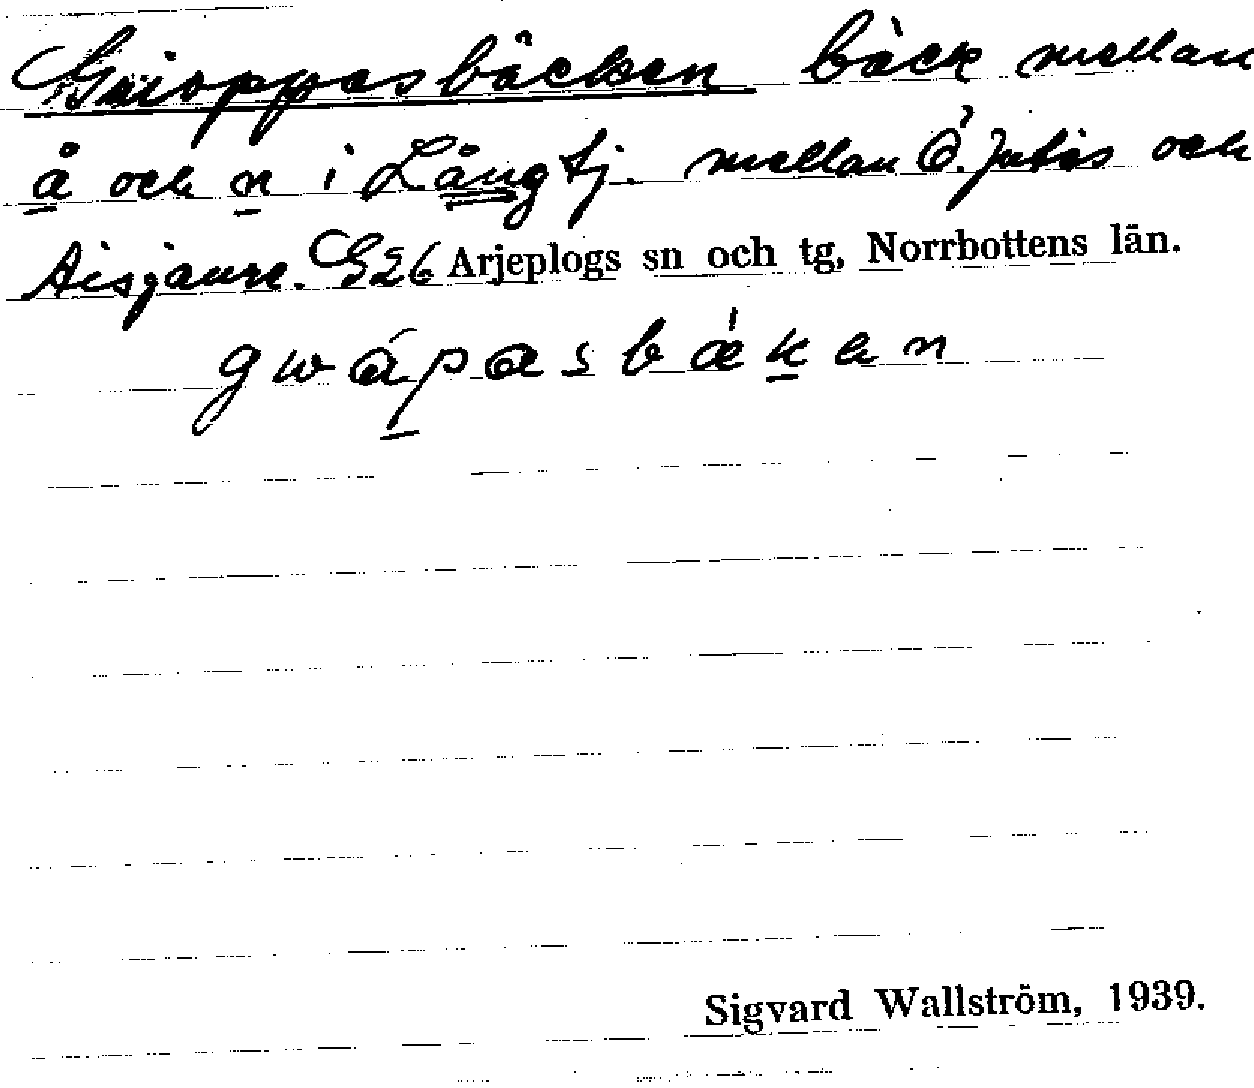 Guioppasbäcken bäck mellan
å och n i Långtj. mellan Ö. Jutis och
Aisjaure. G26 Arjeplogs sn och tg, Norrbottens län.
gwápasbäken
Sigvard Wallström, 1939.